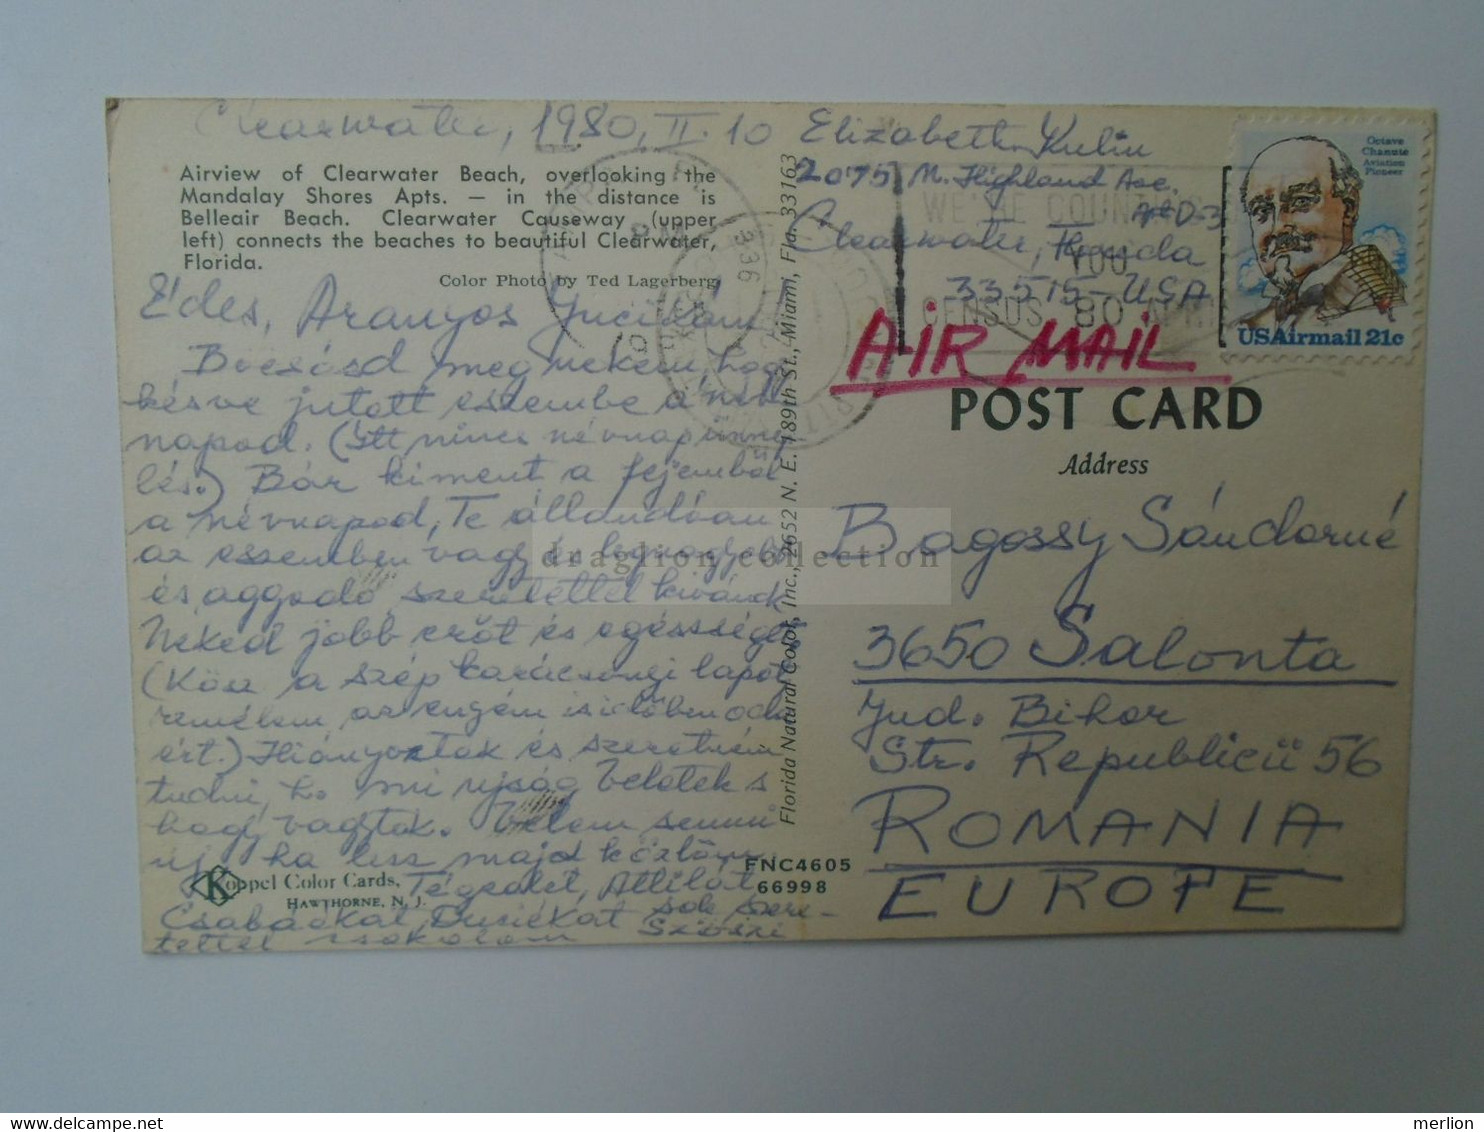 Clearwater, 1980, II. 10
Airview of Clearwater Beach, overlooking the
Mandalay Shores Apts. — in the distance is
Belleair Beach. Clearwater Causeway (upper
left) connects the beaches to beautiful Clearwater,
Florida.
Color Photo by Ted Lagerberg
Édes, Aranyos Jucikám
Bocsásd meg nekem hogy
késve jutott eszembe a név-
napod. (Itt nincs névnap ünnep
lés.) Bár kiment a fejemből
a névnapod, Te állandóan
az eszemben vagy és legnagyobb
és aggódó szeretettel kivánok
Néked jobb erőt és egészséget
(Kösz a szép karácsonyi lapot
remélem az enyém is időben oda
ért.) Hiányoztok és szeretném
tudni, h. mi ujság Veletek s
hogy vagytok. Velem semmi
uj, ha lesz majd közlöm
Koppel Color Cards,
HAWTHORNE, N. J.
Tégedet, Attilát
Csabáékat, Dusiékat sok szere-
tettel csokolom
FNC4605
66998
Florida Natural Color, Inc., 2652 N. E. 189th St., Miami, Fla. 33163
Elizabeth Kulin
2075 N. Highland Ave.
#D-3
Clearwater, Florida
33515-USA
WE'RE COUNTING
YOU
CENSUS '80
336
PM
AIR MAIL
Octave
Chanute
Aviation
Pioneer
USAirmail 21c
POST CARD
Address
Bagossy Sándorné
3650 Salonta
Jud. Bihor
Str. Republicii 56
ROMANIA
EUROPE
draglion collection
merlion